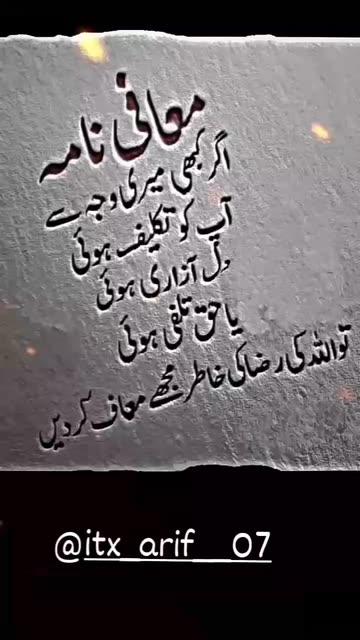 معافی نامہ
اگر کبھی میری وجہ سے
آپ کو تکلیف ہوئی
دل آزاری ہوئی
یا حق تلفی ہوئی
تو اللہ کی رضا کی خاطر مجھے معاف کر دیں
@itx_arif__07